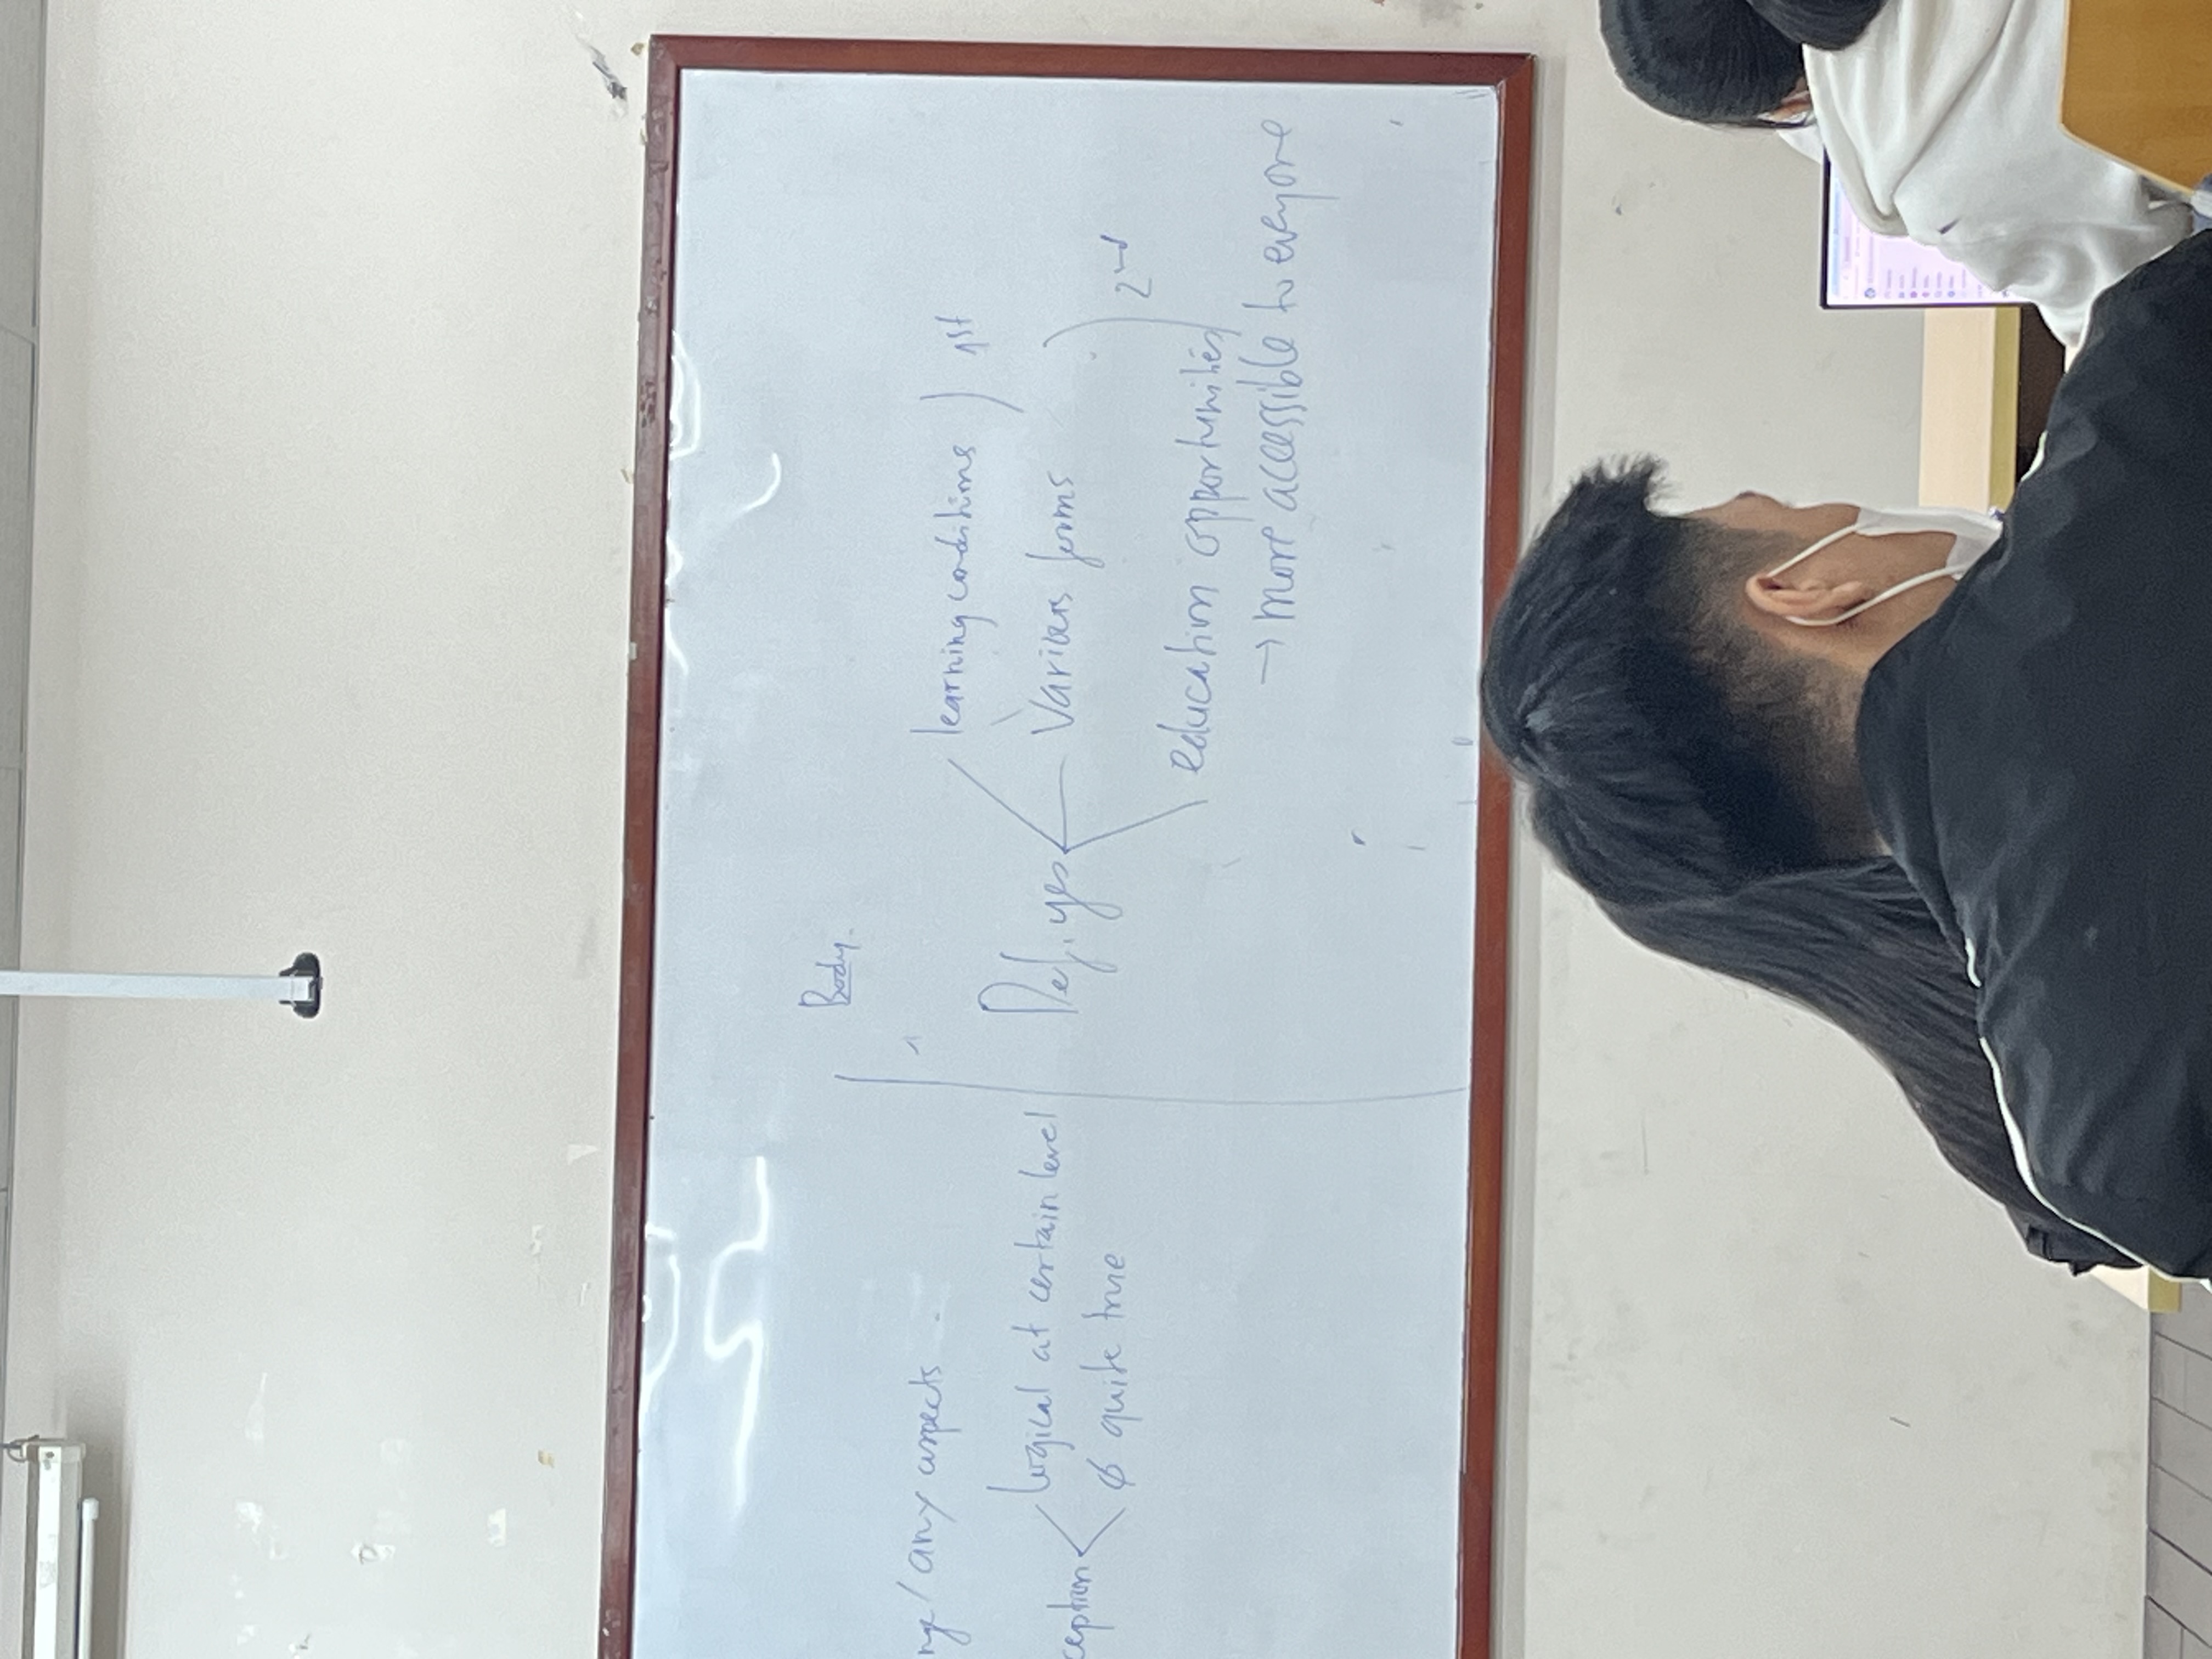 nge / any aspects
ception
logical at certain level
∅ quite true
Body.
1
Def. yes
learning conditions
1st
Various forms
education opportunities
2nd
→ more accessible to everyone